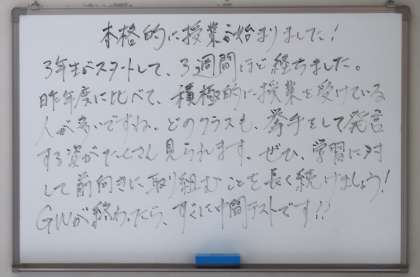 本格的に授業が始まりました!
3年生がスタートして、3週間ほど経ちました。
昨年度に比べて、積極的に授業を受けている
人が多いですね。どのクラスも、挙手をして発言
する姿がたくさん見られます。ぜひ、学習に対
して前向きに取り組むことを長く続けましょう!
GWが終わったら、すぐに中間テストです!!